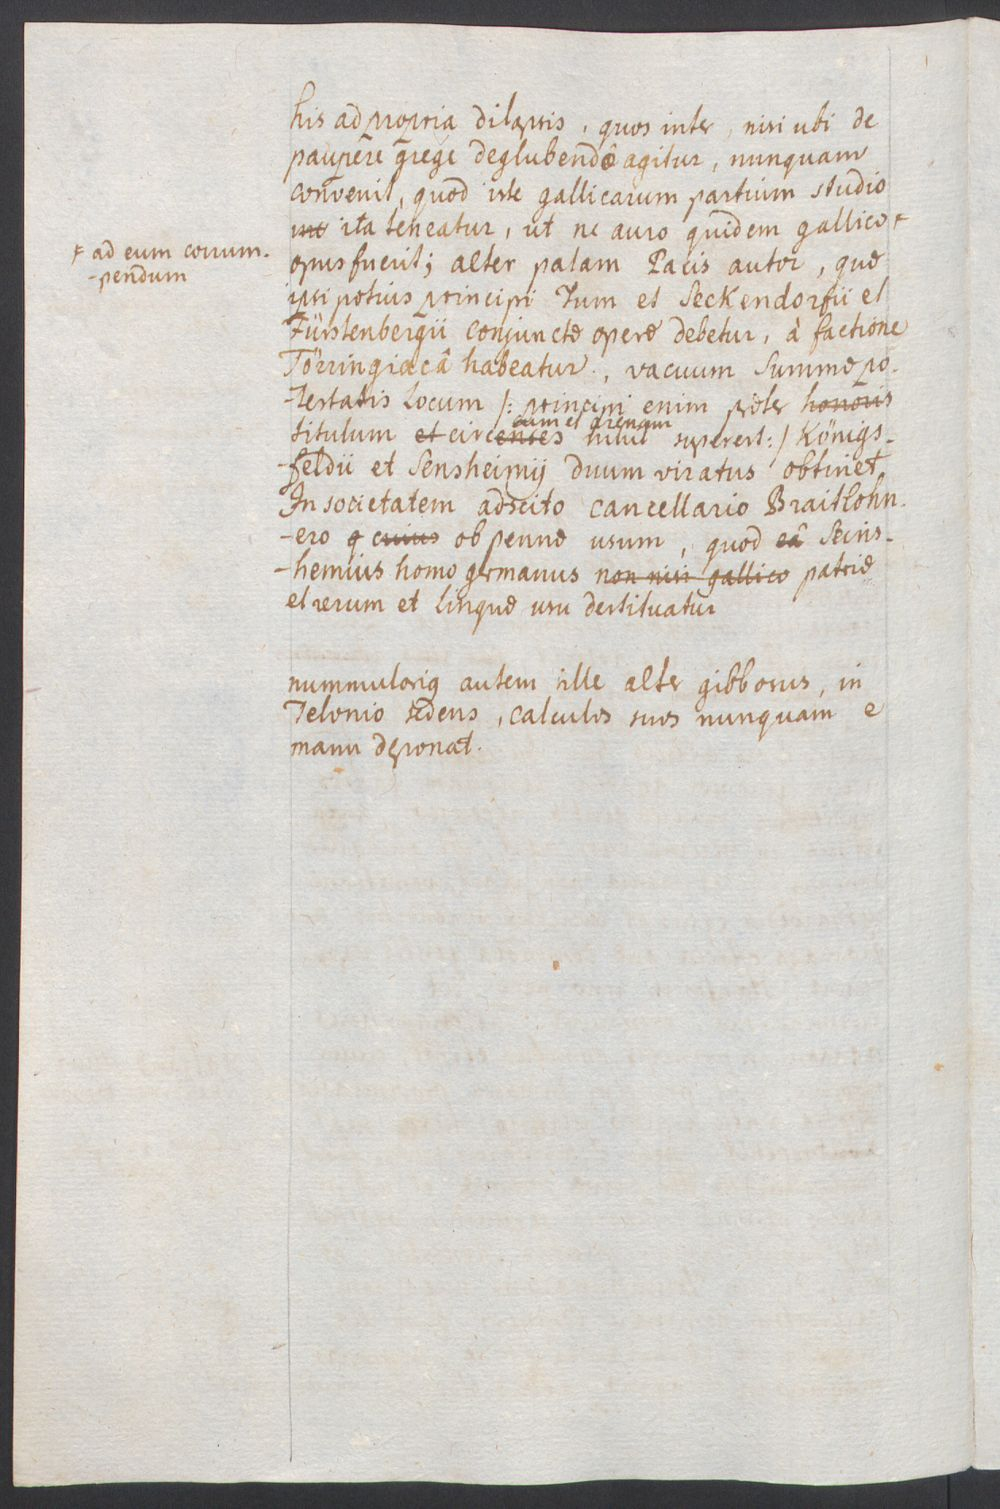 his ad propria dilapsis, quos inter, nisi ubi de
paupere grege deglubendo agitur, nunquam
convenit, quod iste gallicarum partium studio
ita teneatur, ut ne auro quidem gallico +
+ ad eum corrum-
-pendum
opus fuerit; alter palam Pacis autor, quæ
ipsi potius principi Tum et Seckendorfii et
Fürstenbergii conjunctæ operæ debetur, à factione
Törringiacâ habeatur, vacuum summæ po-
-testatis locum /: principi enim præter honoris
cum et arenam
titulum et circenses nihil superest :/ Königs-
-feldii et Sensheimij duum viratus obtinet.
In societatem adscito cancellario Braitlohn-
-ero cuius ob pennæ usum, quod eâ Seins-
-hemius homo germanus non nisi gallico patriæ
et rerum et linguæ usu destituatur
nummulariq autem ille alter gibbosus, in
Telonio sedens, calculos suos nunquam e
manu deponat.